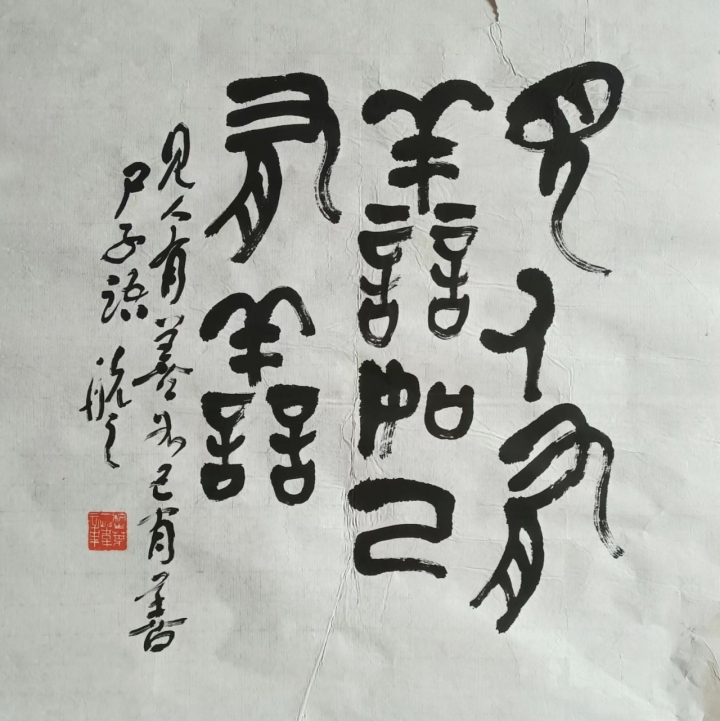 見人有
善如己
有善
见人有善如己有善
尸子语